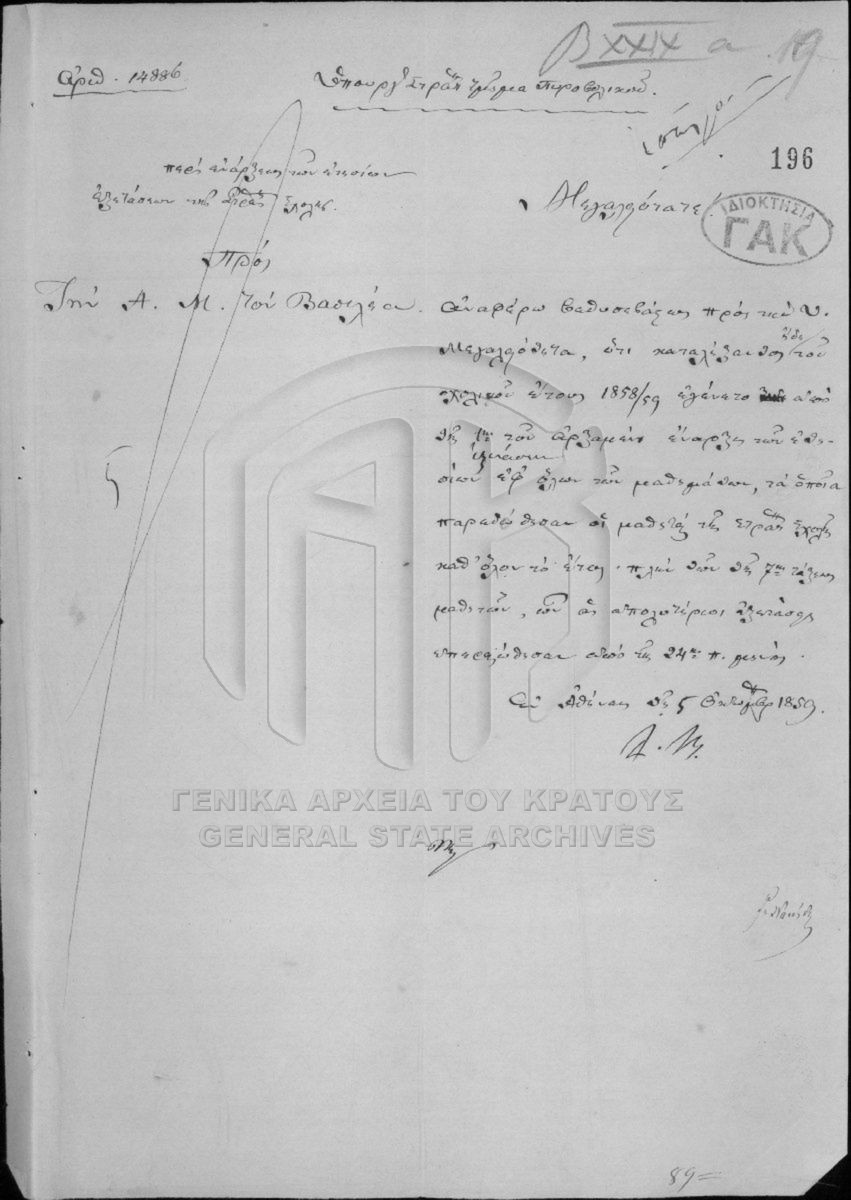 B XXIX a 19
Ἀριθ. 14886
Ὑπουργ. Στρατ. τμῆμα Πυροβολικοῦ.
196
περὶ ἐνάρξεως τῶν ἐτησίων
ἐξετάσεων τῆς Στρατ. Σχολῆς.
Μεγαλειότατε!
ΙΔΙΟΚΤΗΣΙΑ
ΓΑΚ
Πρὸς
Τὴν Α. Μ. τὸν Βασιλέα.
Ἀναφέρω βαθυσεβάστως πρὸς τὴν Υ.
Μεγαλειότητα, ὅτι καταλήξαντος ἤδη τοῦ
σχολικοῦ ἔτους 1858/59 ἐγένετο ἀπὸ
τῆς 1ης τοῦ ἀρξαμένου ἔναρξις τῶν ἐτη-
σίων ἐξετάσεων ἐφ' ὅλων τῶν μαθημάτων, τὰ ὁποῖα
παρεδόθησαν οἱ μαθηταὶ τῆς Στρατ. Σχολῆς
καθ' ὅλον τὸ ἔτος πλὴν τῶν τῆς 7ης τάξεως
μαθητῶν, ὧν αἱ ἀπολυτήριοι ἐξετάσεις
ἐπερατώθησαν ἀπὸ τῆς 24ης π. μηνός.
Ἐν Ἀθήναις τῇ 5 Ὀκτωμβρ 1859.
ΓΕΝΙΚΑ ΑΡΧΕΙΑ ΤΟΥ ΚΡΑΤΟΥΣ
GENERAL STATE ARCHIVES
89